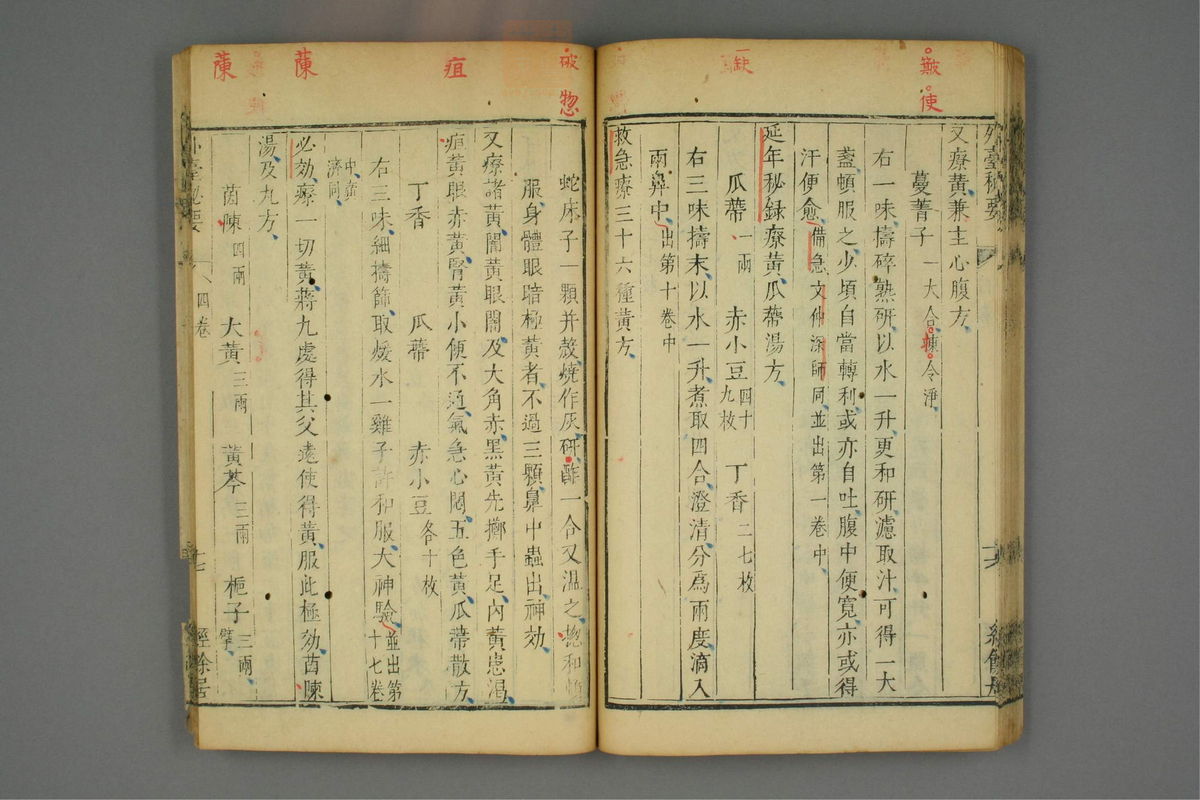 皺使
缺
外臺秘要
又療黃兼主心腹方
蔓菁子一大合揀令淨
右一味擣碎熟研以水一升更和研濾取汁可得一大
盞頓服之少頃自當轉利或亦自吐腹中便寬亦或得
汗便愈備急文仲深師同並出第一卷中
延年秘録療黃瓜蔕湯方
瓜蔕一兩 赤小豆四十九枚 丁香二七枚
右三味擣末以水一升煮取四合澄清分爲兩度滴入
兩鼻中出第十卷中
救急療三十六種黃方
破惣
疽
蔯
蔯
蛇床子一顆并殼燒作灰研酢一合又温之惣和
服身體眼暗極黃者不過三顆鼻中蟲出神効
又療諸黃闇黃眼闇及大角赤黑黃先擲手足內黃患渴
疸黃眼赤黃腎黃小便不通氣急心悶五色黃瓜蔕散方
丁香 瓜蔕 赤小豆各十枚
右三味細擣篩取煖水一雞子許和服大神驗並出第十七卷
中黃濟同
必効療一切黃蔣九處得其父遠使得黃服此極効茵蔯
湯及丸方
茵蔯四兩 大黃三兩 黃芩三兩 梔子三兩擘
外臺秘要
四卷
十七
經餘居